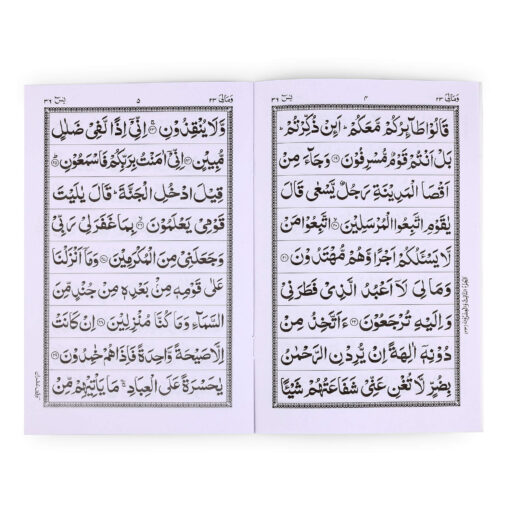 يٰسٓ ٣٦
٤
وَمَالِيَ ٢٣
قَالُوْا طَآئِرُكُمْ مَّعَكُمْ ؕ اَئِنْ ذُكِّرْتُمْ ؕ
بَلْ اَنْتُمْ قَوْمٌ مُّسْرِفُوْنَ ﴿۱۹﴾ وَجَآءَ مِنْ
اَقْصَا الْمَدِيْنَةِ رَجُلٌ يَّسْعٰى قَالَ
يٰقَوْمِ اتَّبِعُوا الْمُرْسَلِيْنَ ﴿۲۰﴾ اتَّبِعُوْا مَنْ
لَّا يَسْـَٔلُكُمْ اَجْرًا وَّهُمْ مُّهْتَدُوْنَ ﴿۲۱﴾
وَمَا لِيَ لَآ اَعْبُدُ الَّذِيْ فَطَرَنِيْ
وَاِلَيْهِ تُرْجَعُوْنَ ﴿۲۲﴾ ءَاَتَّخِذُ مِنْ
دُوْنِهٖۤ اٰلِهَةً اِنْ يُّرِدْنِ الرَّحْمٰنُ
بِضُرٍّ لَّا تُغْنِ عَنِّيْ شَفَاعَتُهُمْ شَيْـًٔا
يٰسٓ ٣٦
٥
وَمَالِيَ ٢٣
وَّلَا يُنْقِذُوْنِ ﴿۲۳﴾ اِنِّيْۤ اِذًا لَّفِيْ ضَلٰلٍ
مُّبِيْنٍ ﴿۲۴﴾ اِنِّيْۤ اٰمَنْتُ بِرَبِّكُمْ فَاسْمَعُوْنِ ﴿۲۵﴾
قِيْلَ ادْخُلِ الْجَنَّةَ ؕ قَالَ يٰلَيْتَ
قَوْمِيْ يَعْلَمُوْنَ ﴿۲۶﴾ بِمَا غَفَرَ لِيْ رَبِّيْ
وَجَعَلَنِيْ مِنَ الْمُكْرَمِيْنَ ﴿۲۷﴾ وَمَاۤ اَنْزَلْنَا
عَلٰى قَوْمِهٖ مِنْۢ بَعْدِهٖ مِنْ جُنْدٍ مِّنَ
السَّمَآءِ وَمَا كُنَّا مُنْزِلِيْنَ ﴿۲۸﴾ اِنْ كَانَتْ
اِلَّا صَيْحَةً وَّاحِدَةً فَاِذَا هُمْ خٰمِدُوْنَ ﴿۲۹﴾
يٰحَسْرَةً عَلَى الْعِبَادِ ؔ مَا يَاْتِيْهِمْ مِّنْ